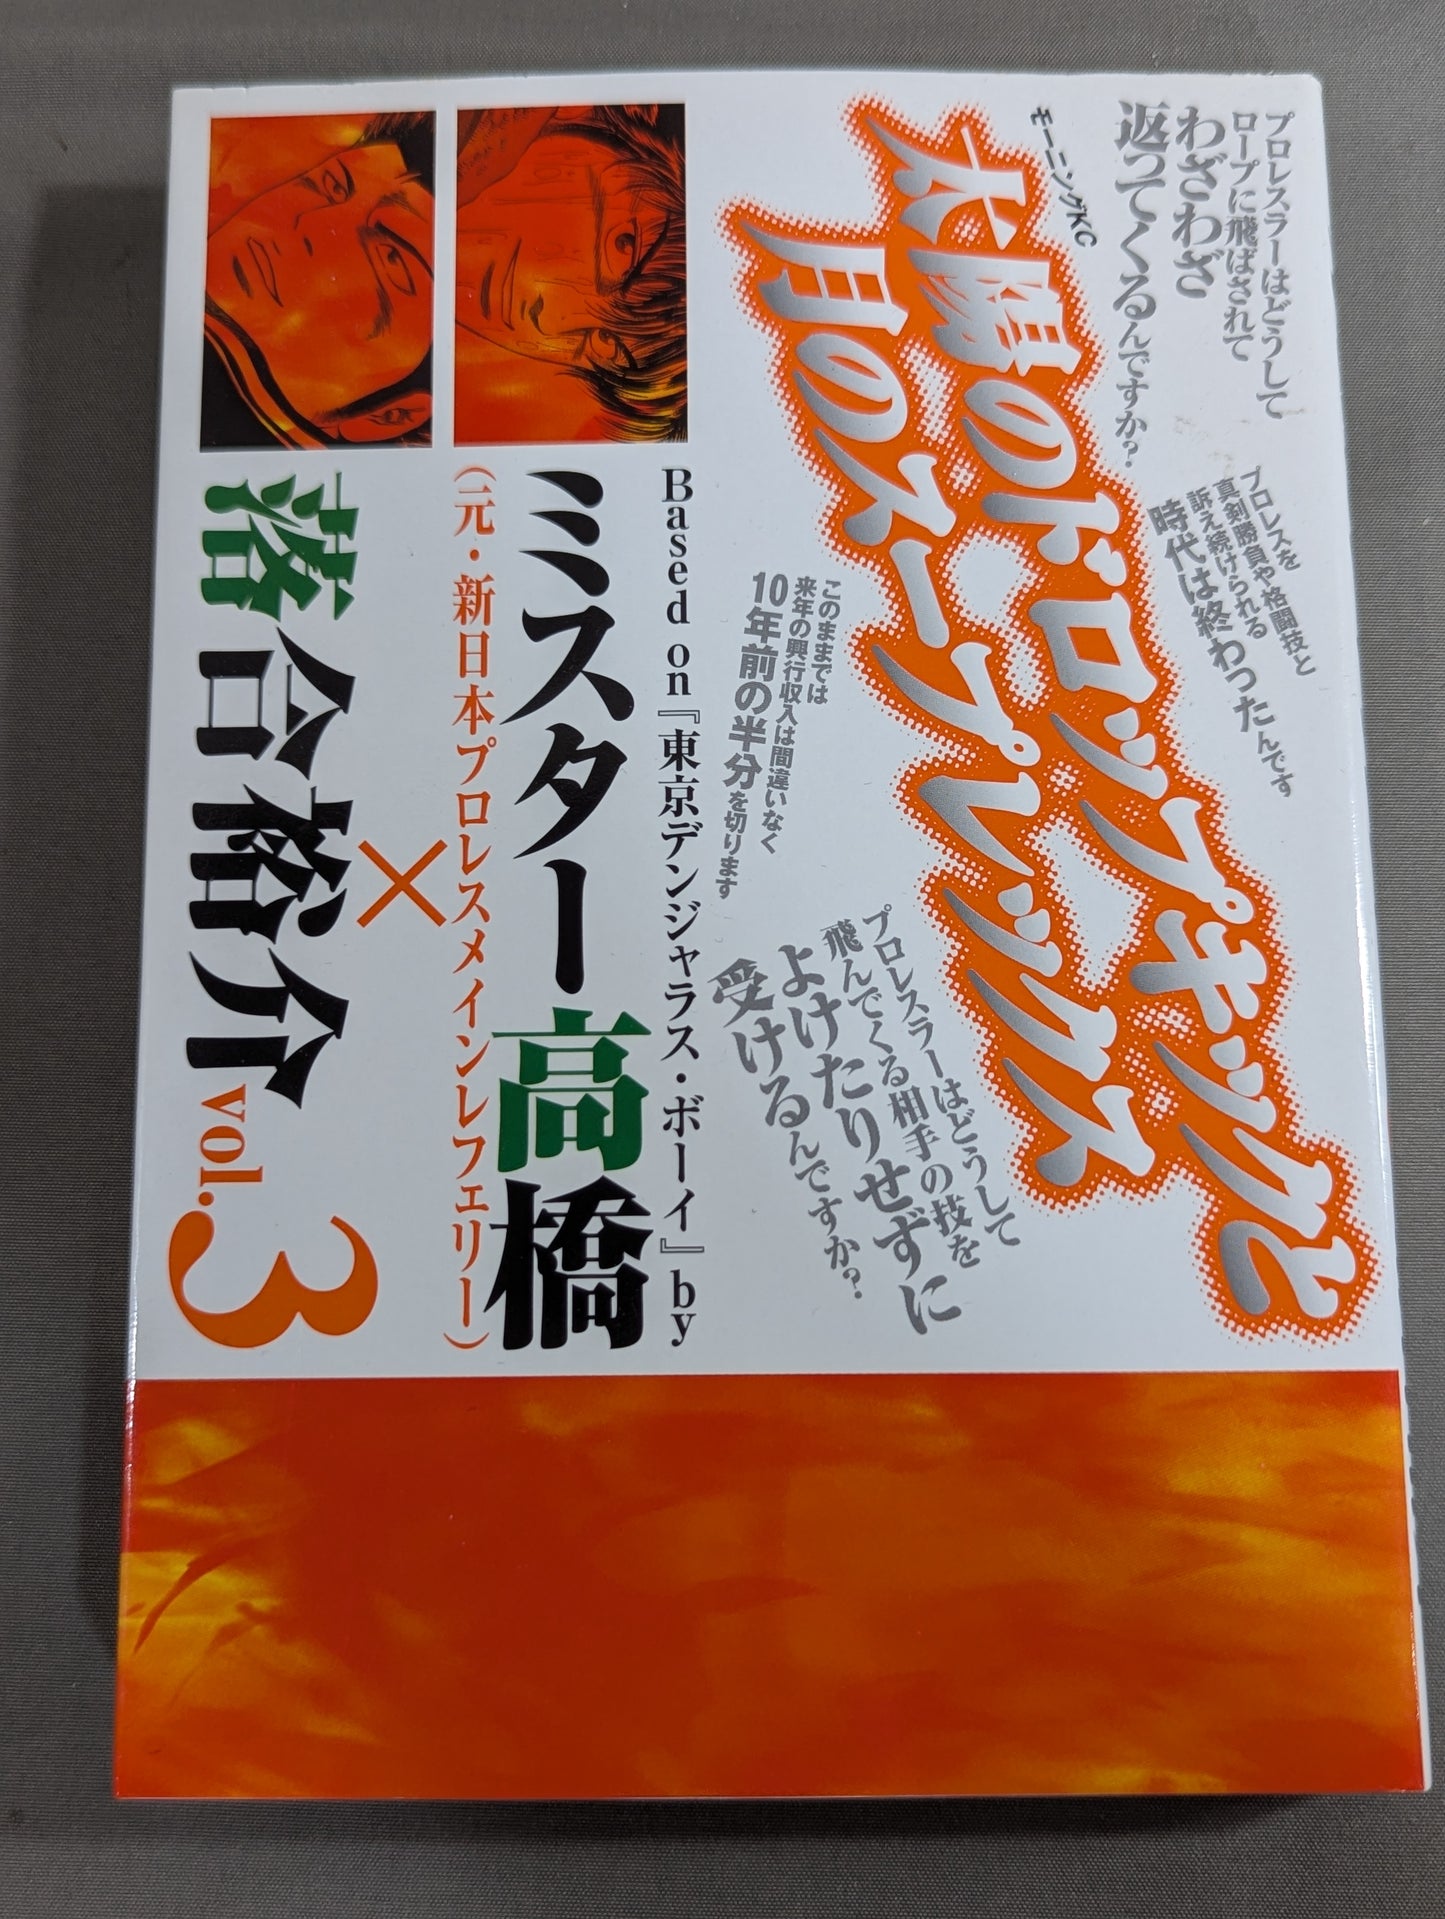 プロレスラーはどうして
ロープに飛ばされて
わざわざ
返ってくるんですか?
モーニングKC
太陽のドロップキックと
月のスープレックス
プロレスを
真剣勝負や格闘技と
訴え続けられる
時代は終わったんです
このままでは
来年の興行収入は間違いなく
10年前の半分を切ります
プロレスラーはどうして
飛んでくる相手の技を
よけたりせずに
受けるんですか?
Based on『東京デンジャラス・ボーイ』by
ミスター高橋
(元・新日本プロレスメインレフェリー)
×
落合裕介 vol.3